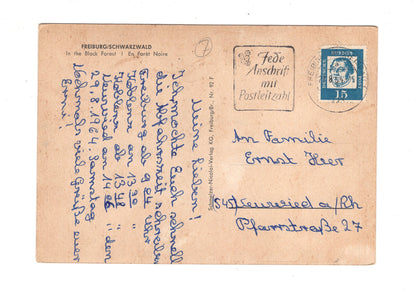 FREIBURG/SCHWARZWALD
In the Black Forest / En Forêt Noire
7
Meine Lieben!
Ich möchte Euch schnell
die Abfahrtszeit schreiben
Freiburg ab 9.24 Uhr
Koblenz an 13.30 "
Koblenz ab 13.48 "
Neuwied an 14.06 " den
29.8.1964. Samstag
Nochmals viele Grüße euer
Erni!
Schöning-Verlag KG, Freiburg/Br. Nr. 92 F
Jede
Anschrift
mit
Postleitzahl
FREIBURG
DEUTSCHE BUNDESPOST
15
An Familie
Ernst Heer
(545) Neuwied a/Rh
Pfarrstraße 27